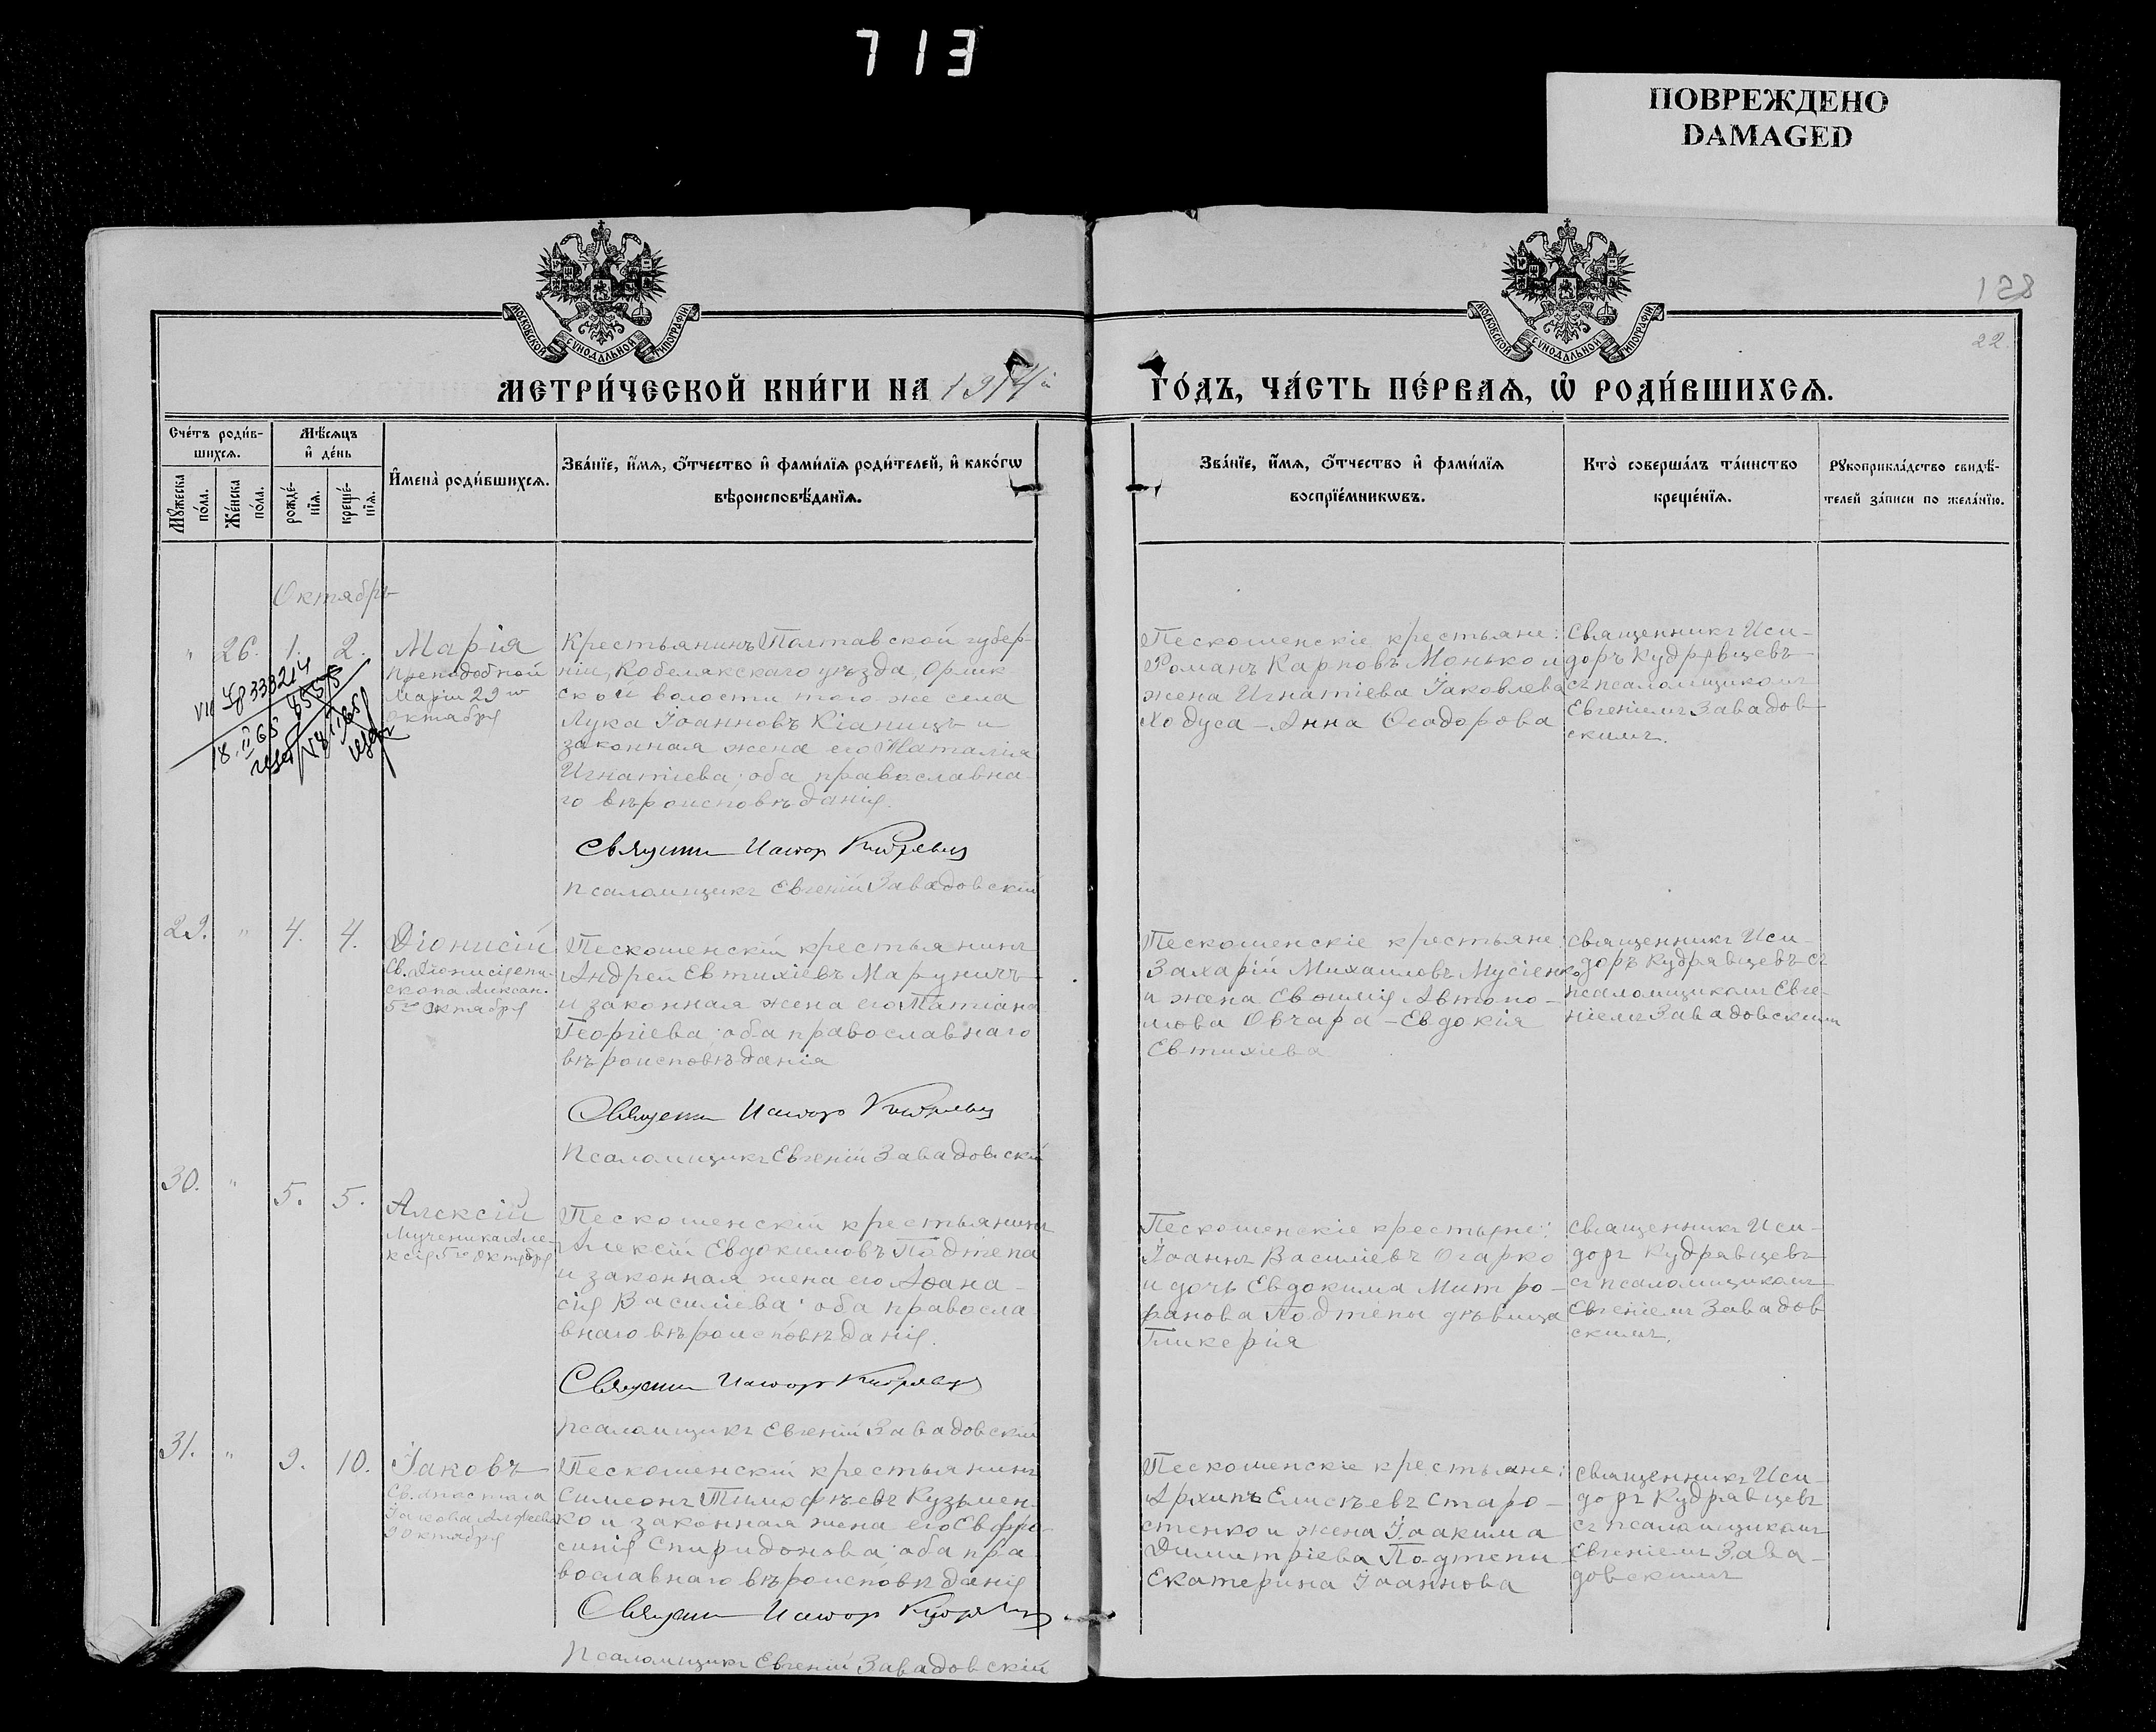 713
ПОВРЕЖДЕНО
DAMAGED
МОСКОВСКОЙ СѴНОДАЛЬНОЙ ТИПОГРАФІИ
МОСКОВСКОЙ СѴНОДАЛЬНОЙ ТИПОГРАФІИ
128
22
МЕТРИ́ЧЕСКОЙ КНИ́ГИ НА 1914й
ГО́ДЪ, ЧА́СТЬ ПЕ́РВАѦ, Ѽ РОДИ́ВШИХСѦ.
Сче́тъ роди́в-
шихсѧ.
Мѣ́сѧцъ
и҆ де́нь
Му́жеска
по́ла.
Же́нска
по́ла.
рожде́-
нїѧ.
креще́-
нїѧ.
И҆мена̀ роди́вшихсѧ.
Зва́нїе, и҆́мѧ, ѻ҆́тчество и҆ фами́лїѧ роди́телей, и҆ како́гѡ
вѣроисповѣ́данїѧ.
Зва́нїе, и҆́мѧ, ѻ҆́тчество и҆ фами́лїѧ
воспрїе́мникѡвъ.
Кто̀ соверша́лъ та́инство
креще́нїѧ.
Рꙋкоприкла́дство свидѣ́-
телей за́писи по жела́нїю.
Октябрь
" 26. 1. 2.
Марія
Преподобной
Маріи 29го
октября
Крестьянинъ Полтавской губер-
ніи, Кобелякскаго уѣзда, Орлик
ской волости того же села
Лука Іоанновъ и
законная жена его Наталія
Игнатіева; оба православна-
го вѣроисповѣданія.
Псаломщикъ Евгеній Завадовскій
Пескошенскіе крестьяне:
Романъ Карповъ Монько и
жена Игнатіева Іаковлева
Ходуса - Анна Ѳеодорова
Священникъ Иси-
доръ Кудрявцевъ
съ псаломщикомъ
Евгеніемъ Завадов-
скимъ.
29. " 4. 4.
Діонисій
Св. Діонисія епи-
скопа Алексан.
5го октября
Пескошенскій крестьянинъ
Андрей Евтихіевъ Маруничъ
и законная жена его Татіана
Георгіева; оба православнаго
вѣроисповѣданія
Священ. Исидор Кудрявцев
Псаломщикъ Евгеній Завадовскій
Пескошенскіе крестьяне:
Захарій Михаиловъ Мусіенко
и жена Евѳимія Автоно-
мова Овчара - Евдокія
Евтихіева
Священникъ Иси-
доръ Кудрявцевъ съ
псаломщикомъ Евге-
ніемъ Завадовскимъ
30. " 5. 5.
Алексій
Мученика Але-
ксія 5го октября
Пескошенскій крестьянинъ
Алексій Евдокимовъ Подтепа
и законная жена его Аѳана-
сія Василіева; оба правосла-
внаго вѣроисповѣданія.
Священ. Исидор Кудрявцев
Псаломщикъ Евгеній Завадовскій
Пескошенскіе крестьяне:
Іоаннъ Василіевъ Огарко
и дочь Евдокима Митро-
фанова Подтепы дѣвица
Гликерія
Священникъ Иси-
доръ Кудрявцевъ
съ псаломщикомъ
Евгеніемъ Завадов
скимъ.
31. " 9. 10.
Іаковъ
Св. Апостола
Іакова Алфеева
9 октября
Пескошенскій крестьянинъ
Симеонъ Тимоѳѣевъ Кузьмен-
ко и законная жена его Евфро-
синія Спиридонова; оба пра-
вославнаго вѣроисповѣданія
Священ. Исидор Кудрявцев
Псаломщикъ Евгеній Завадовскій
Пескошенскіе крестьяне:
Архипъ Елисѣевъ Старо-
стенко и жена Іоакима
Димитріева Подтепы
Екатерина Іоаннова
Священникъ Иси-
доръ Кудрявцевъ
съ псаломщикомъ
Евгеніемъ Зава-
довскимъ